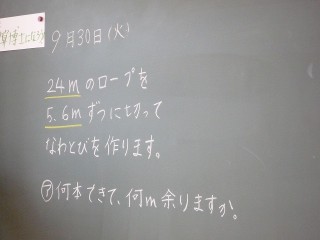 9月30日(火)
24mのロープを
5.6mずつに切って
なわとびを作ります。
㋐何本できて、何m余りますか。